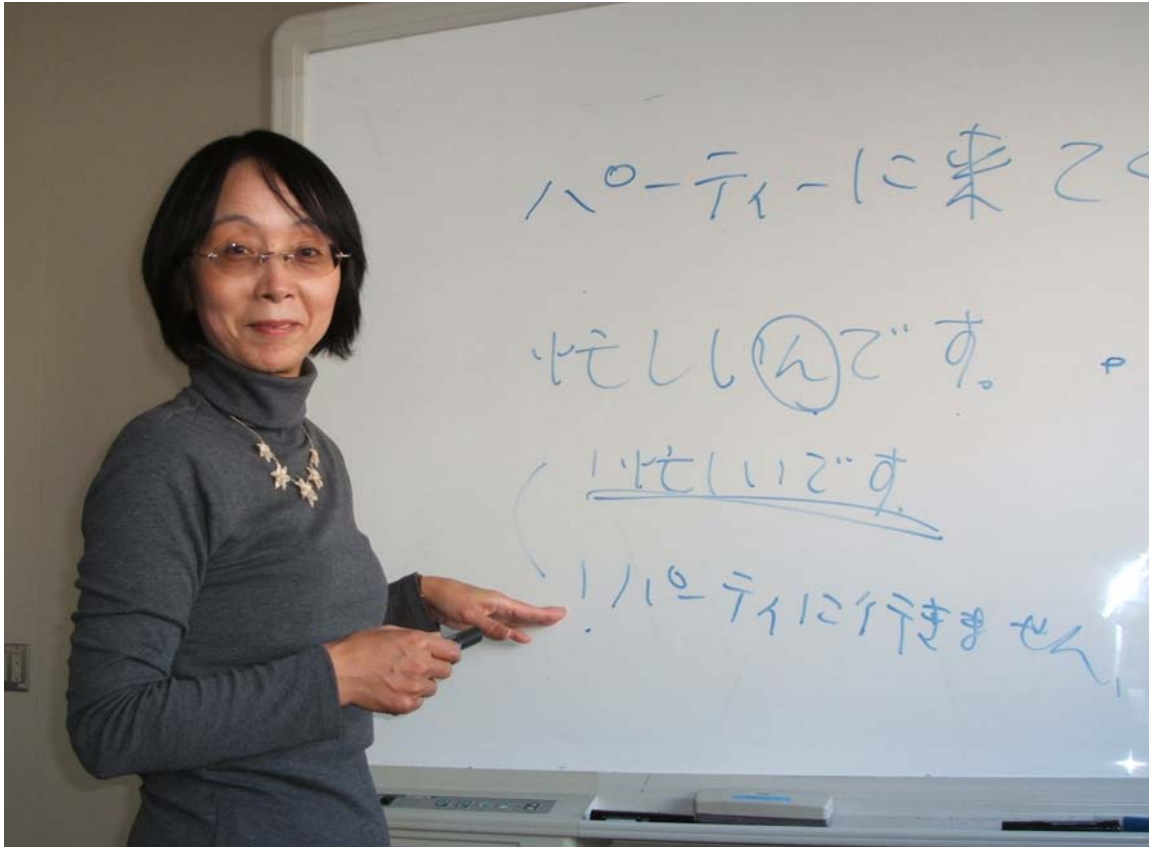 パーティーに来てく
忙しいんです。
!忙しいです。
!パーティに行きません。